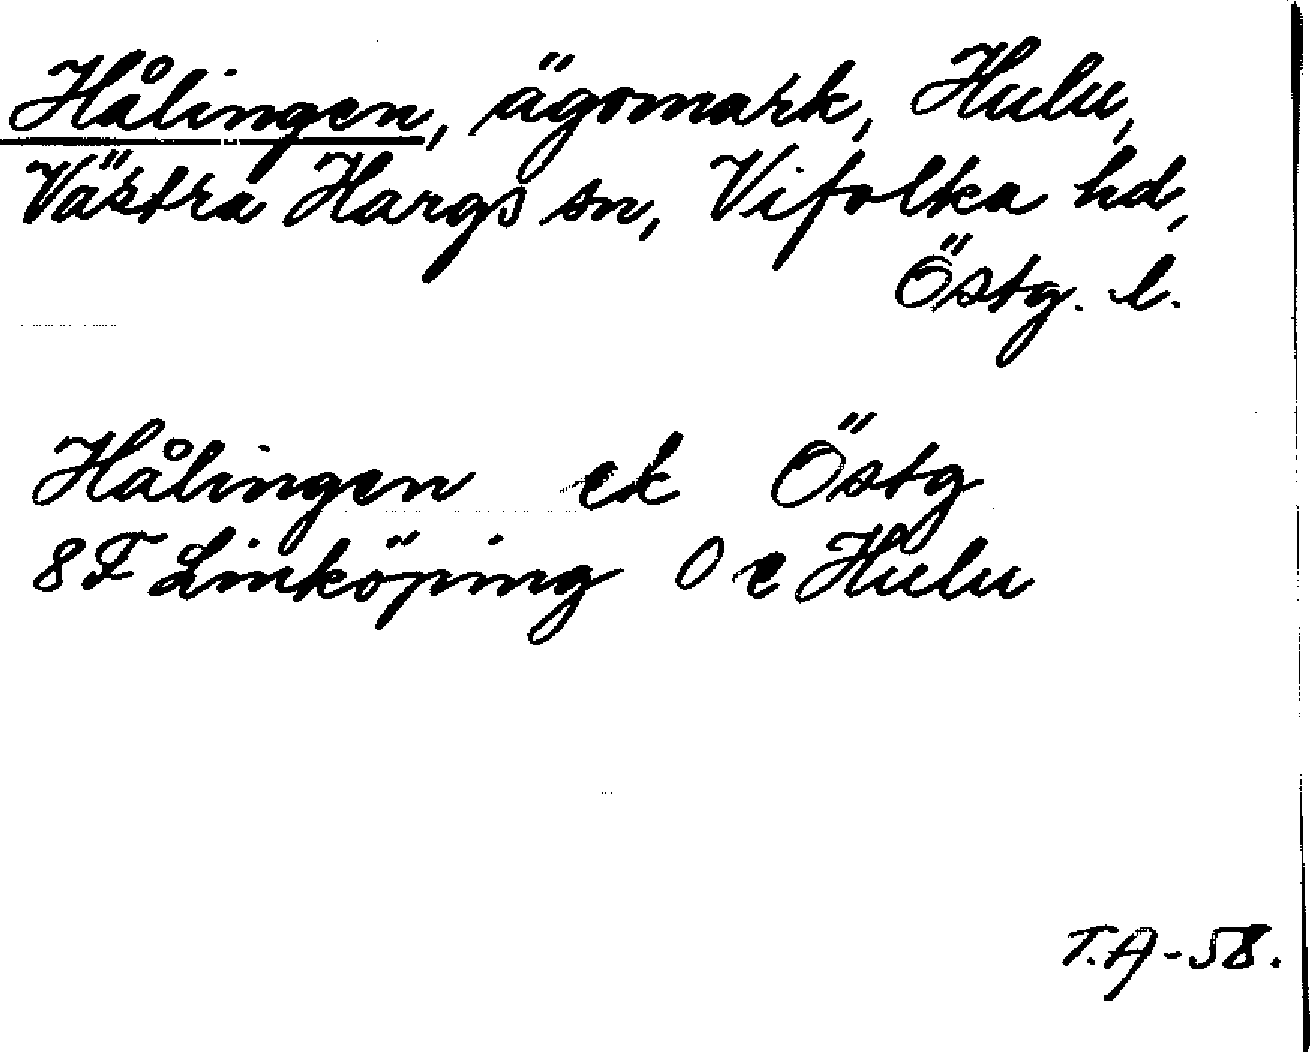 Hålingen, ägomark, Hulu,
Västra Hargs sn, Vifolka hd,
Östg. l.
Hålingen ek Östg
8F Linköping O e Hulu
T.A-58.